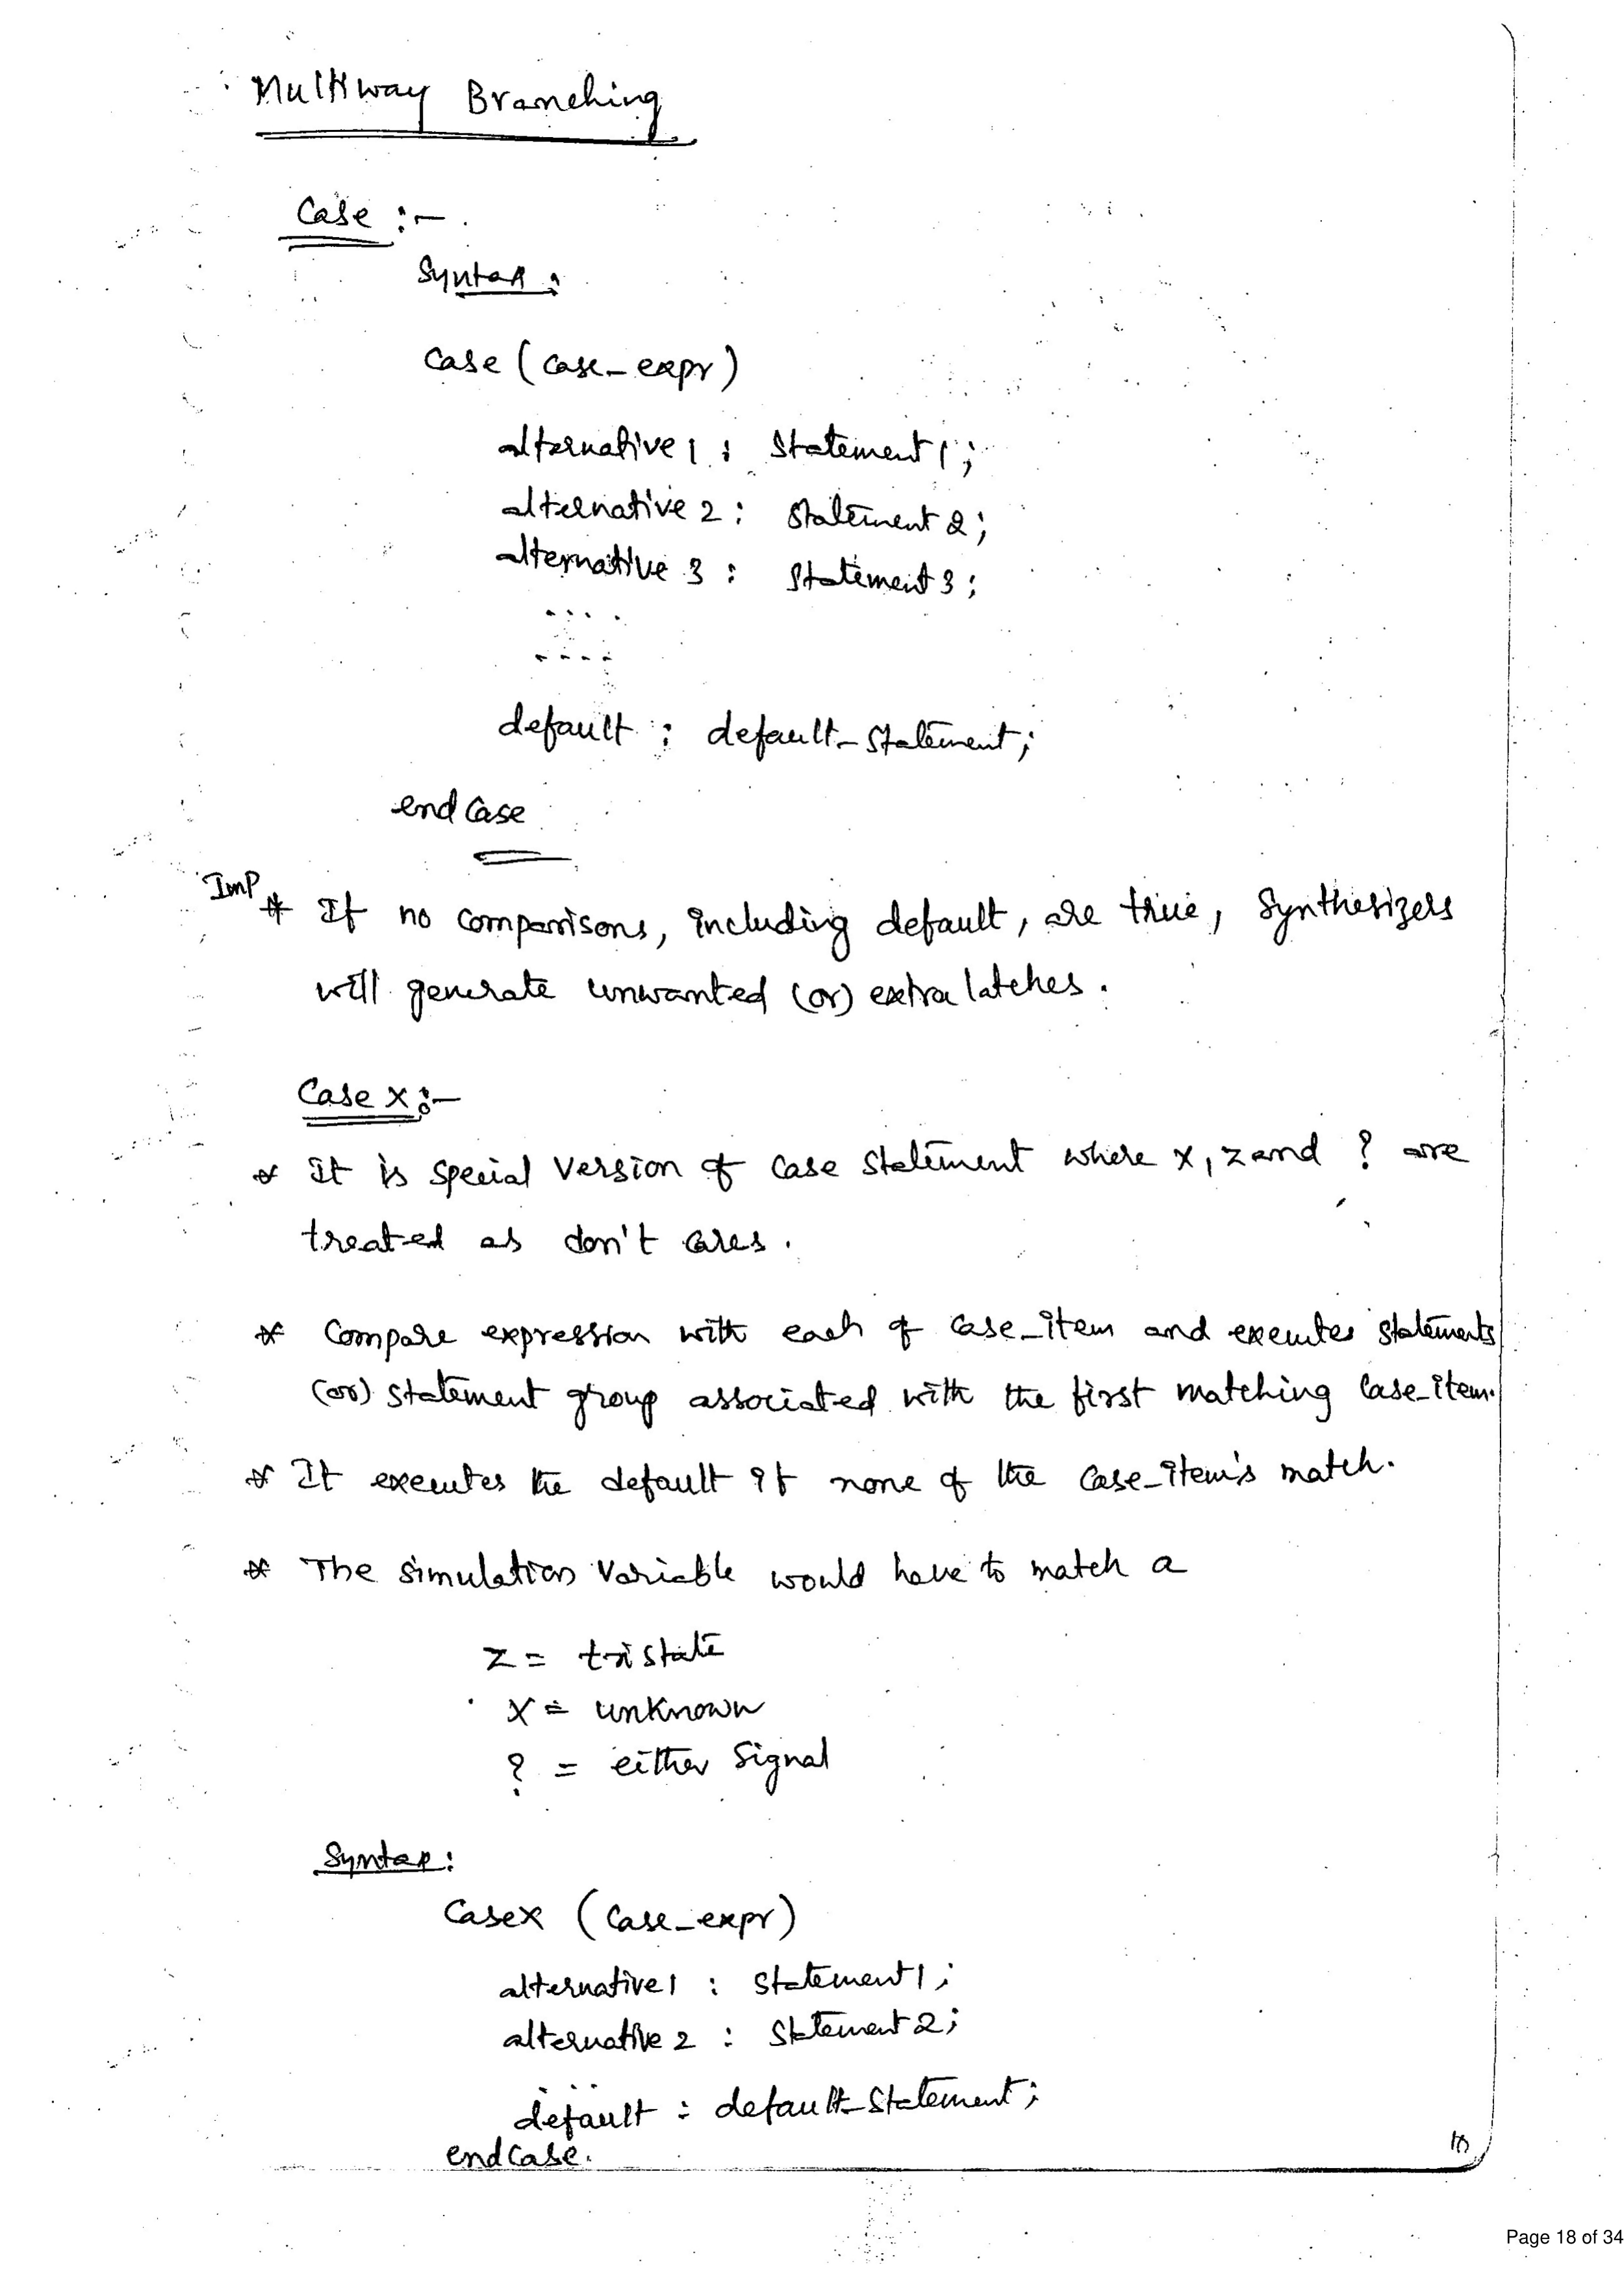 Multiway Branching
Case :-
Syntax :
case (case_expr)
alternative 1 : statement 1 ;
alternative 2 : statement 2 ;
alternative 3 : statement 3 ;
....
....
default : default_statement ;
endcase
Imp * If no comparisons, including default, are true, synthesizers
will generate unwanted (or) extra latches .
Case x :-
* It is special version of case statement where x, z and ? are
treated as don't cares .
* Compare expression with each of case_item and executes statements
(or) statement group associated with the first matching case_item.
* It executes the default if none of the case_item's match.
* The simulation variable would have to match a
z = tristate
x = unknown
? = either signal
Syntax :
casex (case_expr)
alternative 1 : statement 1 ;
alternative 2 : statement 2 ;
...
default : default_statement ;
endcase.
18
Page 18 of 34